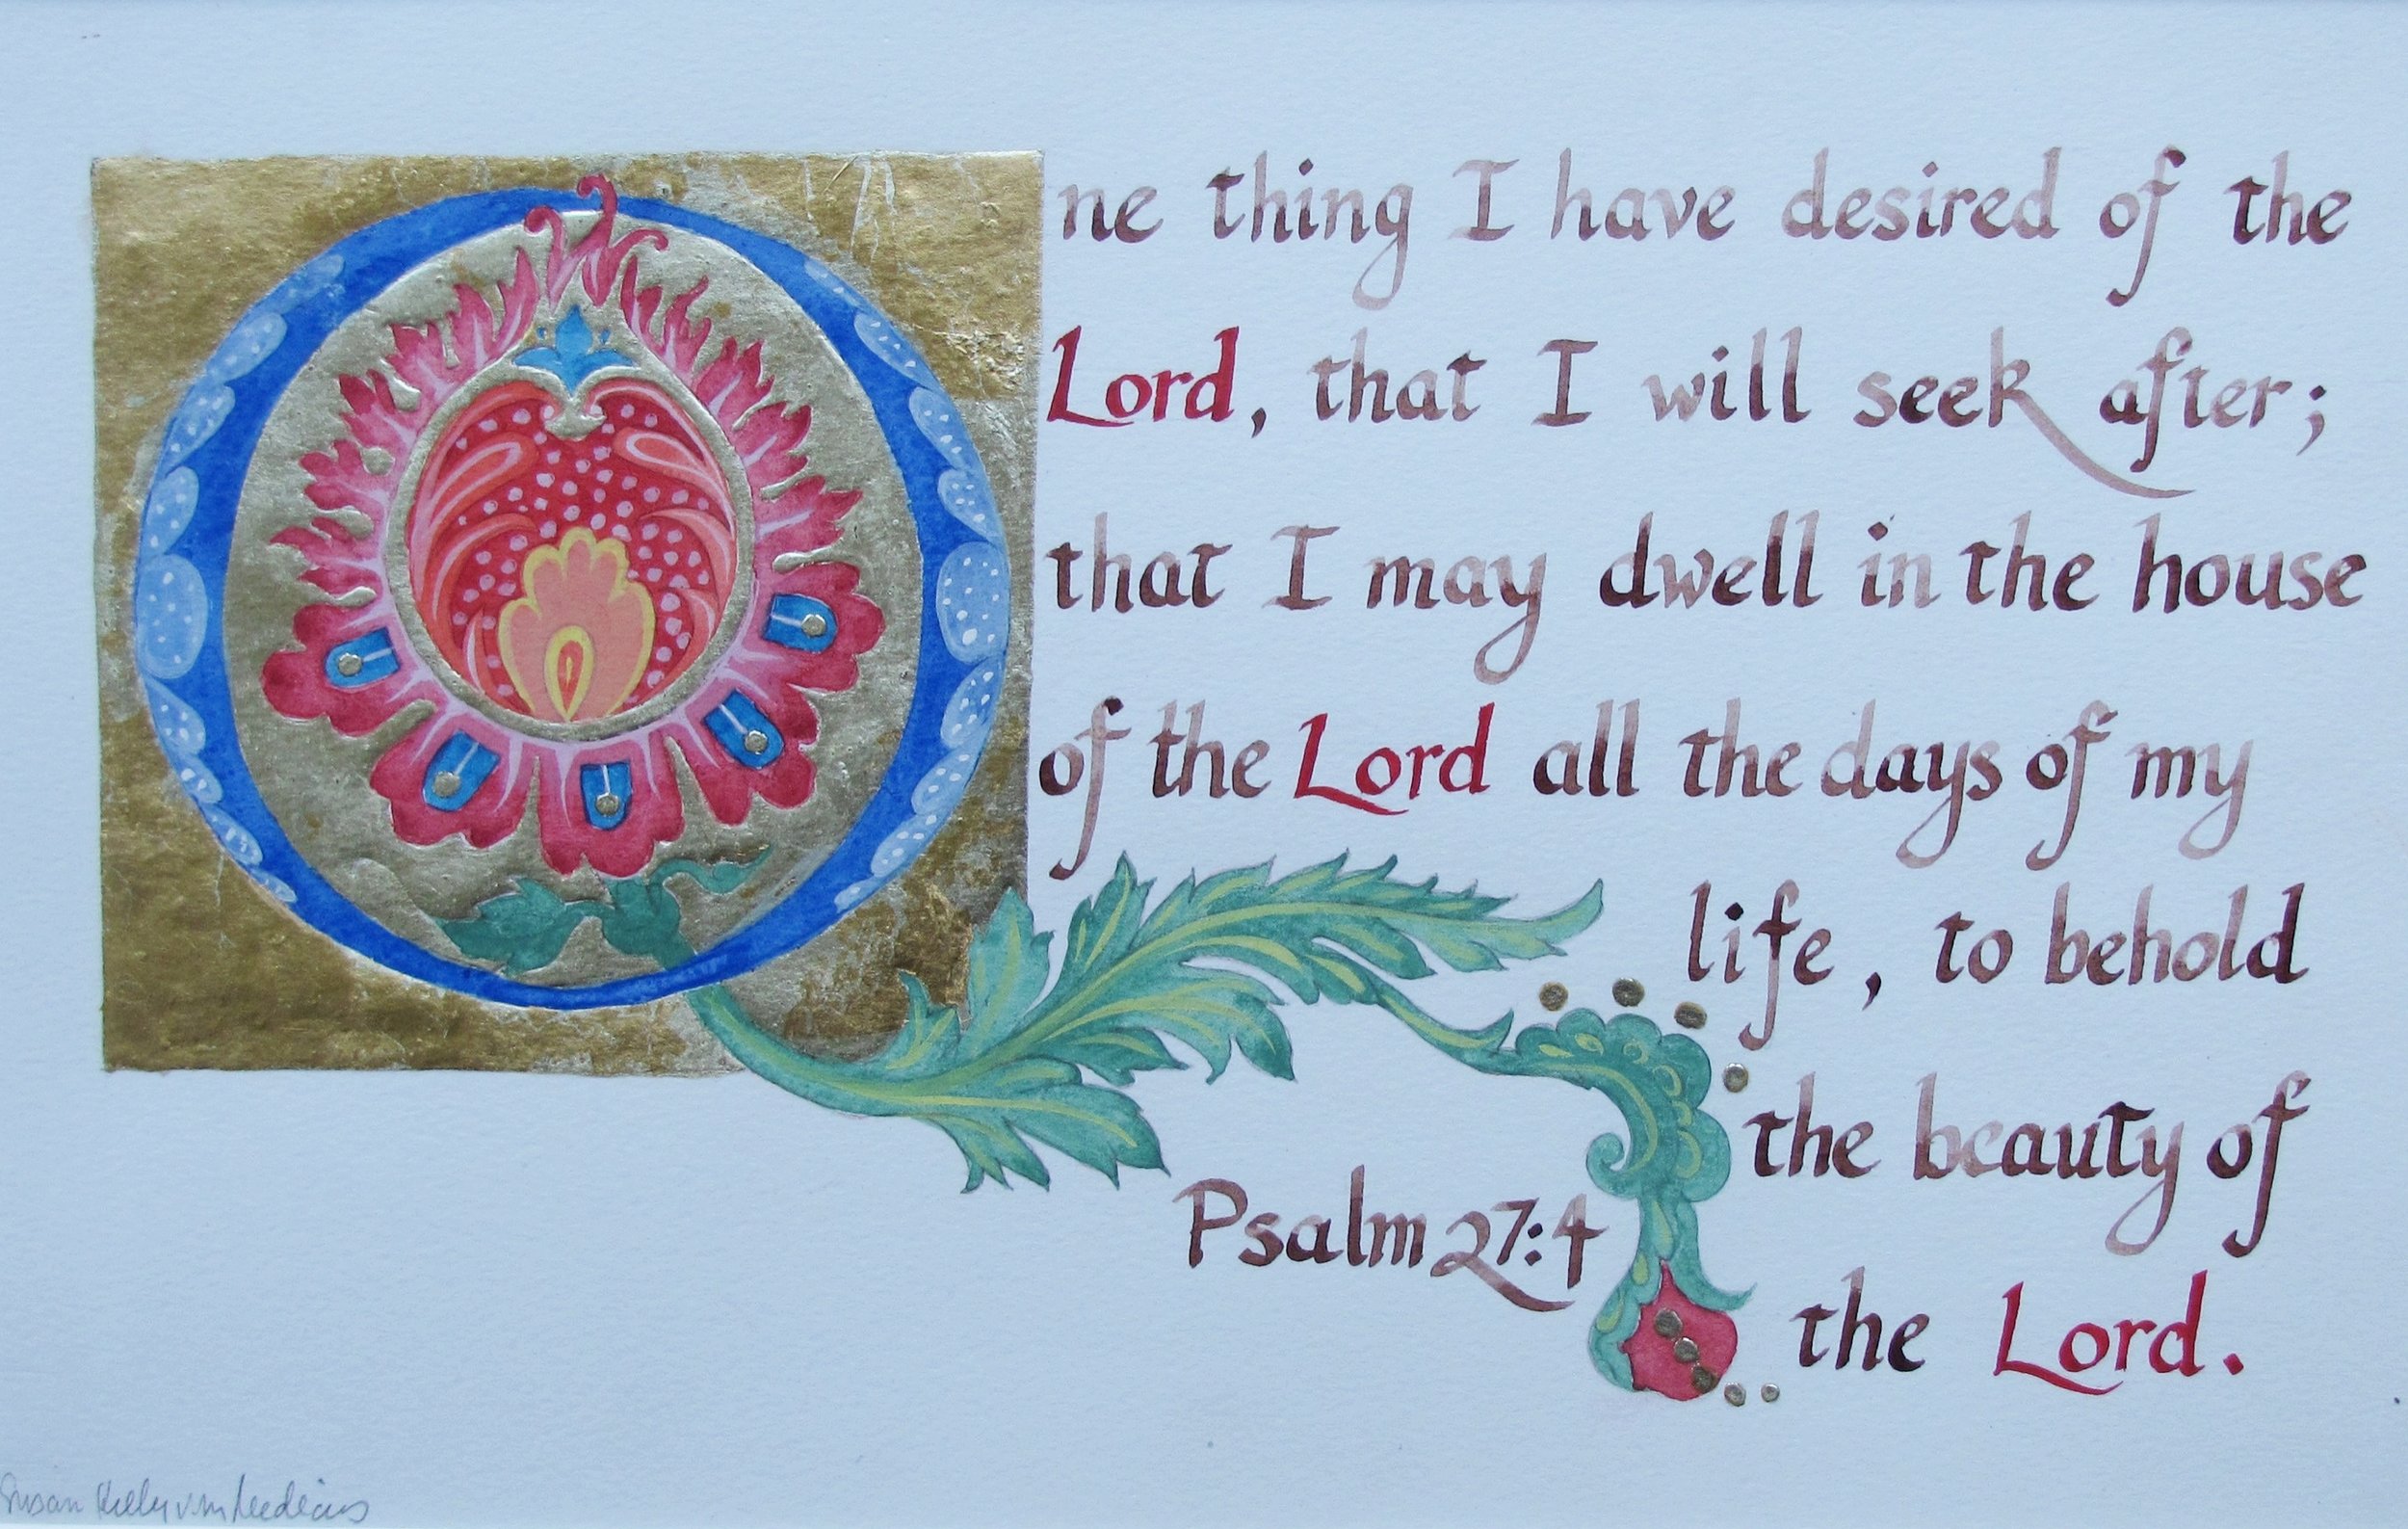 One thing I have desired of the
Lord, that I will seek after;
that I may dwell in the house
of the Lord all the days of my
life, to behold
the beauty of
the Lord.
Psalm 27:4
Susan Kelly